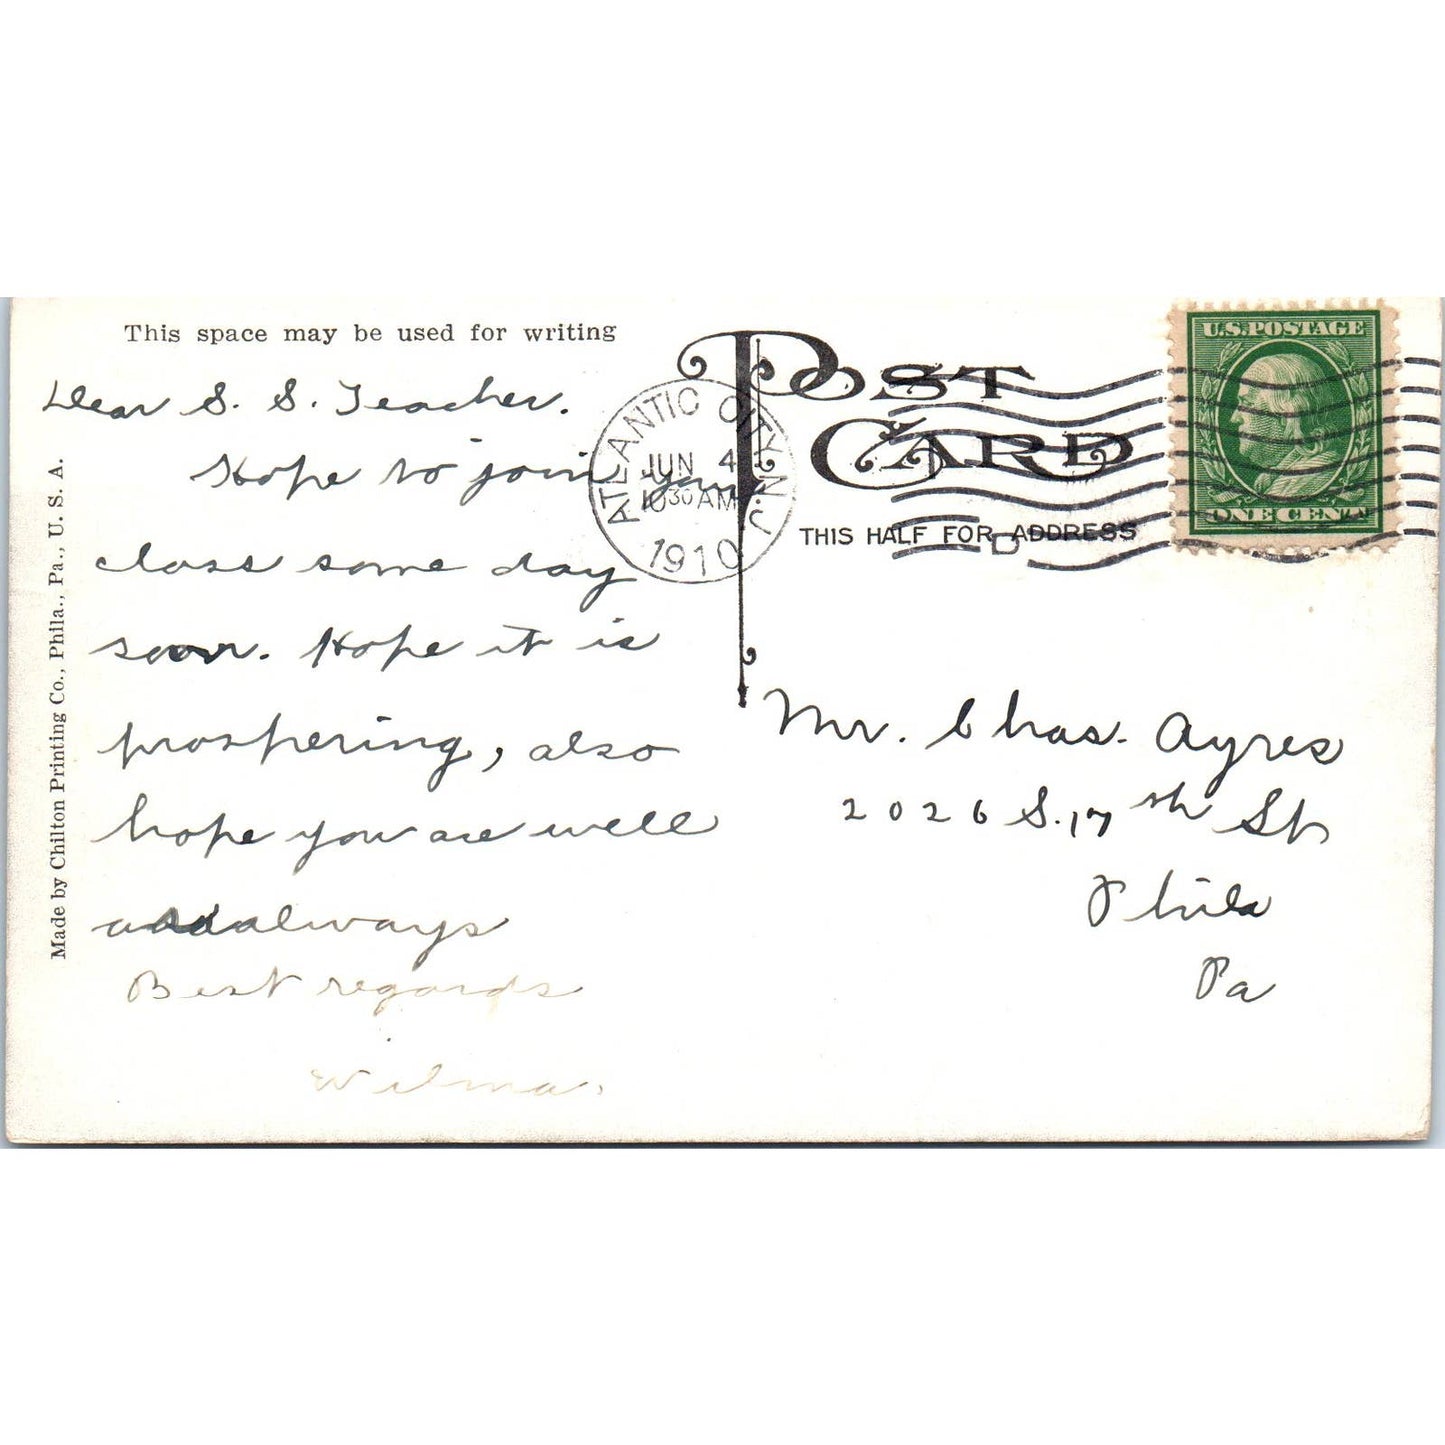 This space may be used for writing
Dear S. S. Teacher.
Hope to join your
class some day
soon. Hope it is
prospering, also
hope you are well
always
Best regards
Wilma.
Made by Chilton Printing Co., Phila., Pa., U. S. A.
ATLANTIC CITY, N.J.
JUN 4
10 30 AM
1910
POST CARD
THIS HALF FOR ADDRESS
U.S. POSTAGE
ONE CENT
Mr. Chas. Ayres
2026 S. 17th St
Phila
Pa